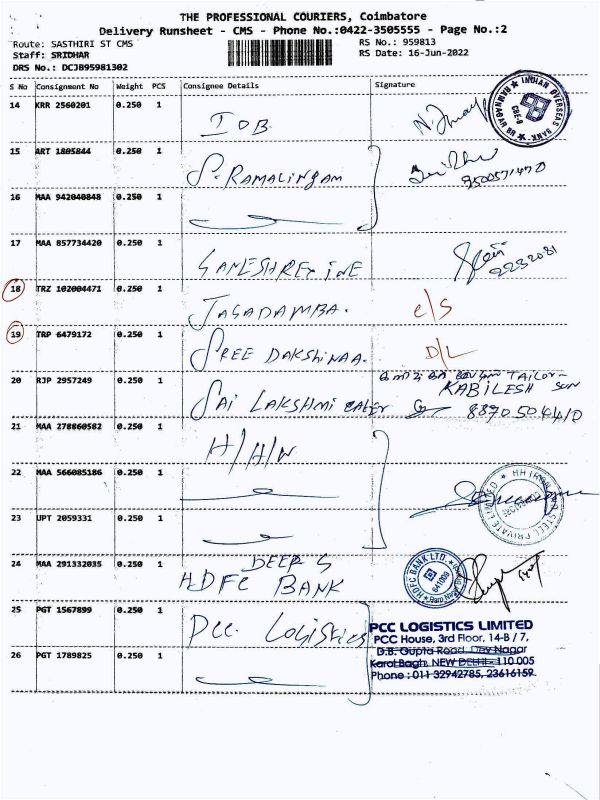 THE PROFESSIONAL COURIERS, Coimbatore
Delivery Runsheet - CMS - Phone No.:0422-3505555 - Page No.:2
Route: SASTHIRI ST CMS
RS No.: 959813
Staff: SRIDHAR
RS Date: 16-Jun-2022
DRS No.: DCJB95981302
S No Consignment No Weight PCS Consignee Details Signature
14 KRR 2560201 0.250 1 IOB
INDIAN OVERSEAS BANK
CBE-9
15 ART 1805844 0.250 1 S. RAMALINGAM
16 MAA 942040848 0.250 1
17 MAA 857734420 0.250 1
18 TRZ 102004471 0.250 1 JAGADAMBA. e/s
19 TRP 6479172 0.250 1 SREE DAKSHINAA. D/L
20 RJP 2957249 0.250 1 SAI LAKSHMI
TAILOR
KABILESH
8870504410
21 MAA 278860582 0.250 1 H/H/W
22 MAA 566085186 0.250 1
STEEL PRIVATE LIMITED
23 UPT 2059331 0.250 1
24 MAA 291332035 0.250 1 DEEP S
HDFC BANK
HDFC BANK LTD.
641009
25 PGT 1567899 0.250 1 PCC LOGISTICS
PCC LOGISTICS LIMITED
PCC House, 3rd Floor, 14-B / 7,
D.B. Gupta Road, Dev Nagar
Karol Bagh, NEW DELHI - 110 005
Phone : 011 32942785, 23616159
26 PGT 1789825 0.250 1